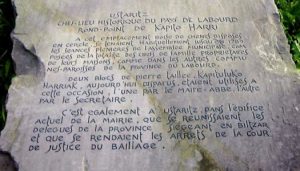 USTARITZ
CHEF-LIEU HISTORIQUE DU PAYS DE LABOURD
ROND-POINT DE KAPITO HARRI
A cet emplacement, nde de chenes disposés
en cercle, se tenaient jusqu'en 1789
les séances plenieres de l'assemblée municipale, com-
posées de la plupart des chefs de famille proprietaires
de leurs maisons, comme dans les autres commu-
nes-paroisses de la province du Labourd.
Deux blocs de pierre taillée, Kapituluko
Harriak, aujourd'hui disparus, etaient utilisés
cette occasion, l'une par le maire-abbé, l'autre
par le secretaire.
C'est également a Ustaritz dans l'édifice
actuel de la mairie, que se réunissaient les
delegues de la province siegeant en Biltzar
et que se rendaient les arrets de la cour
de justice du bailliage.